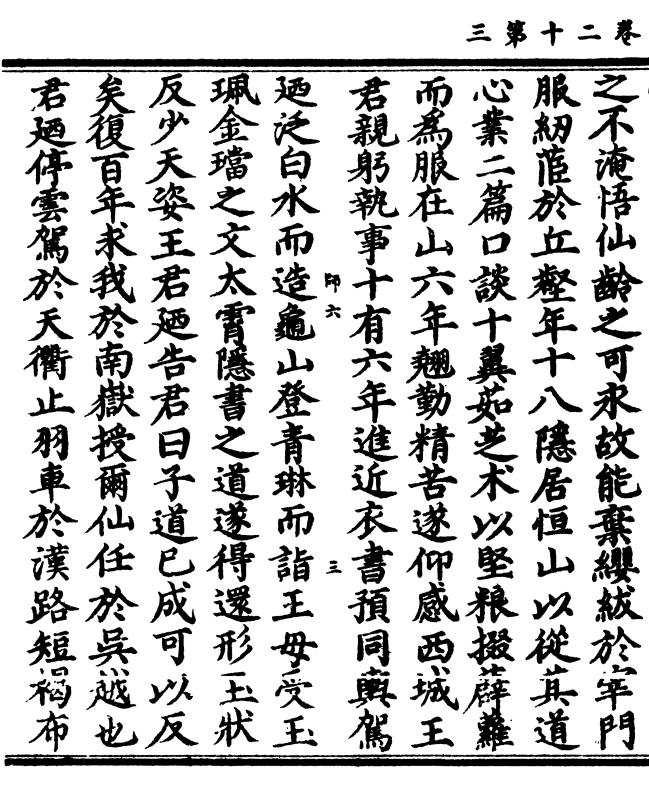 卷二十第三
之不淹悟仙齡之可永故能棄纓紱於宰門
服紉蓲於丘壑年十八隱居恒山以從其道
心業二篇口談十翼茹芝术以堅粮掇薜蘿
而爲服在山六年翹勤精苦遂仰感西城王
君親躬執事十有六年進近衣書預同輿駕
師六
三
廼泛白水而造龜山登青琳而詣王母受玉
珮金璫之文太霄隱書之道遂得還形玉狀
反少天姿王君廼告君曰子道已成可以反
矣復百年求我於南嶽授爾仙任於吳越也
君廼停雲駕於天衢止羽車於漢路短褐布